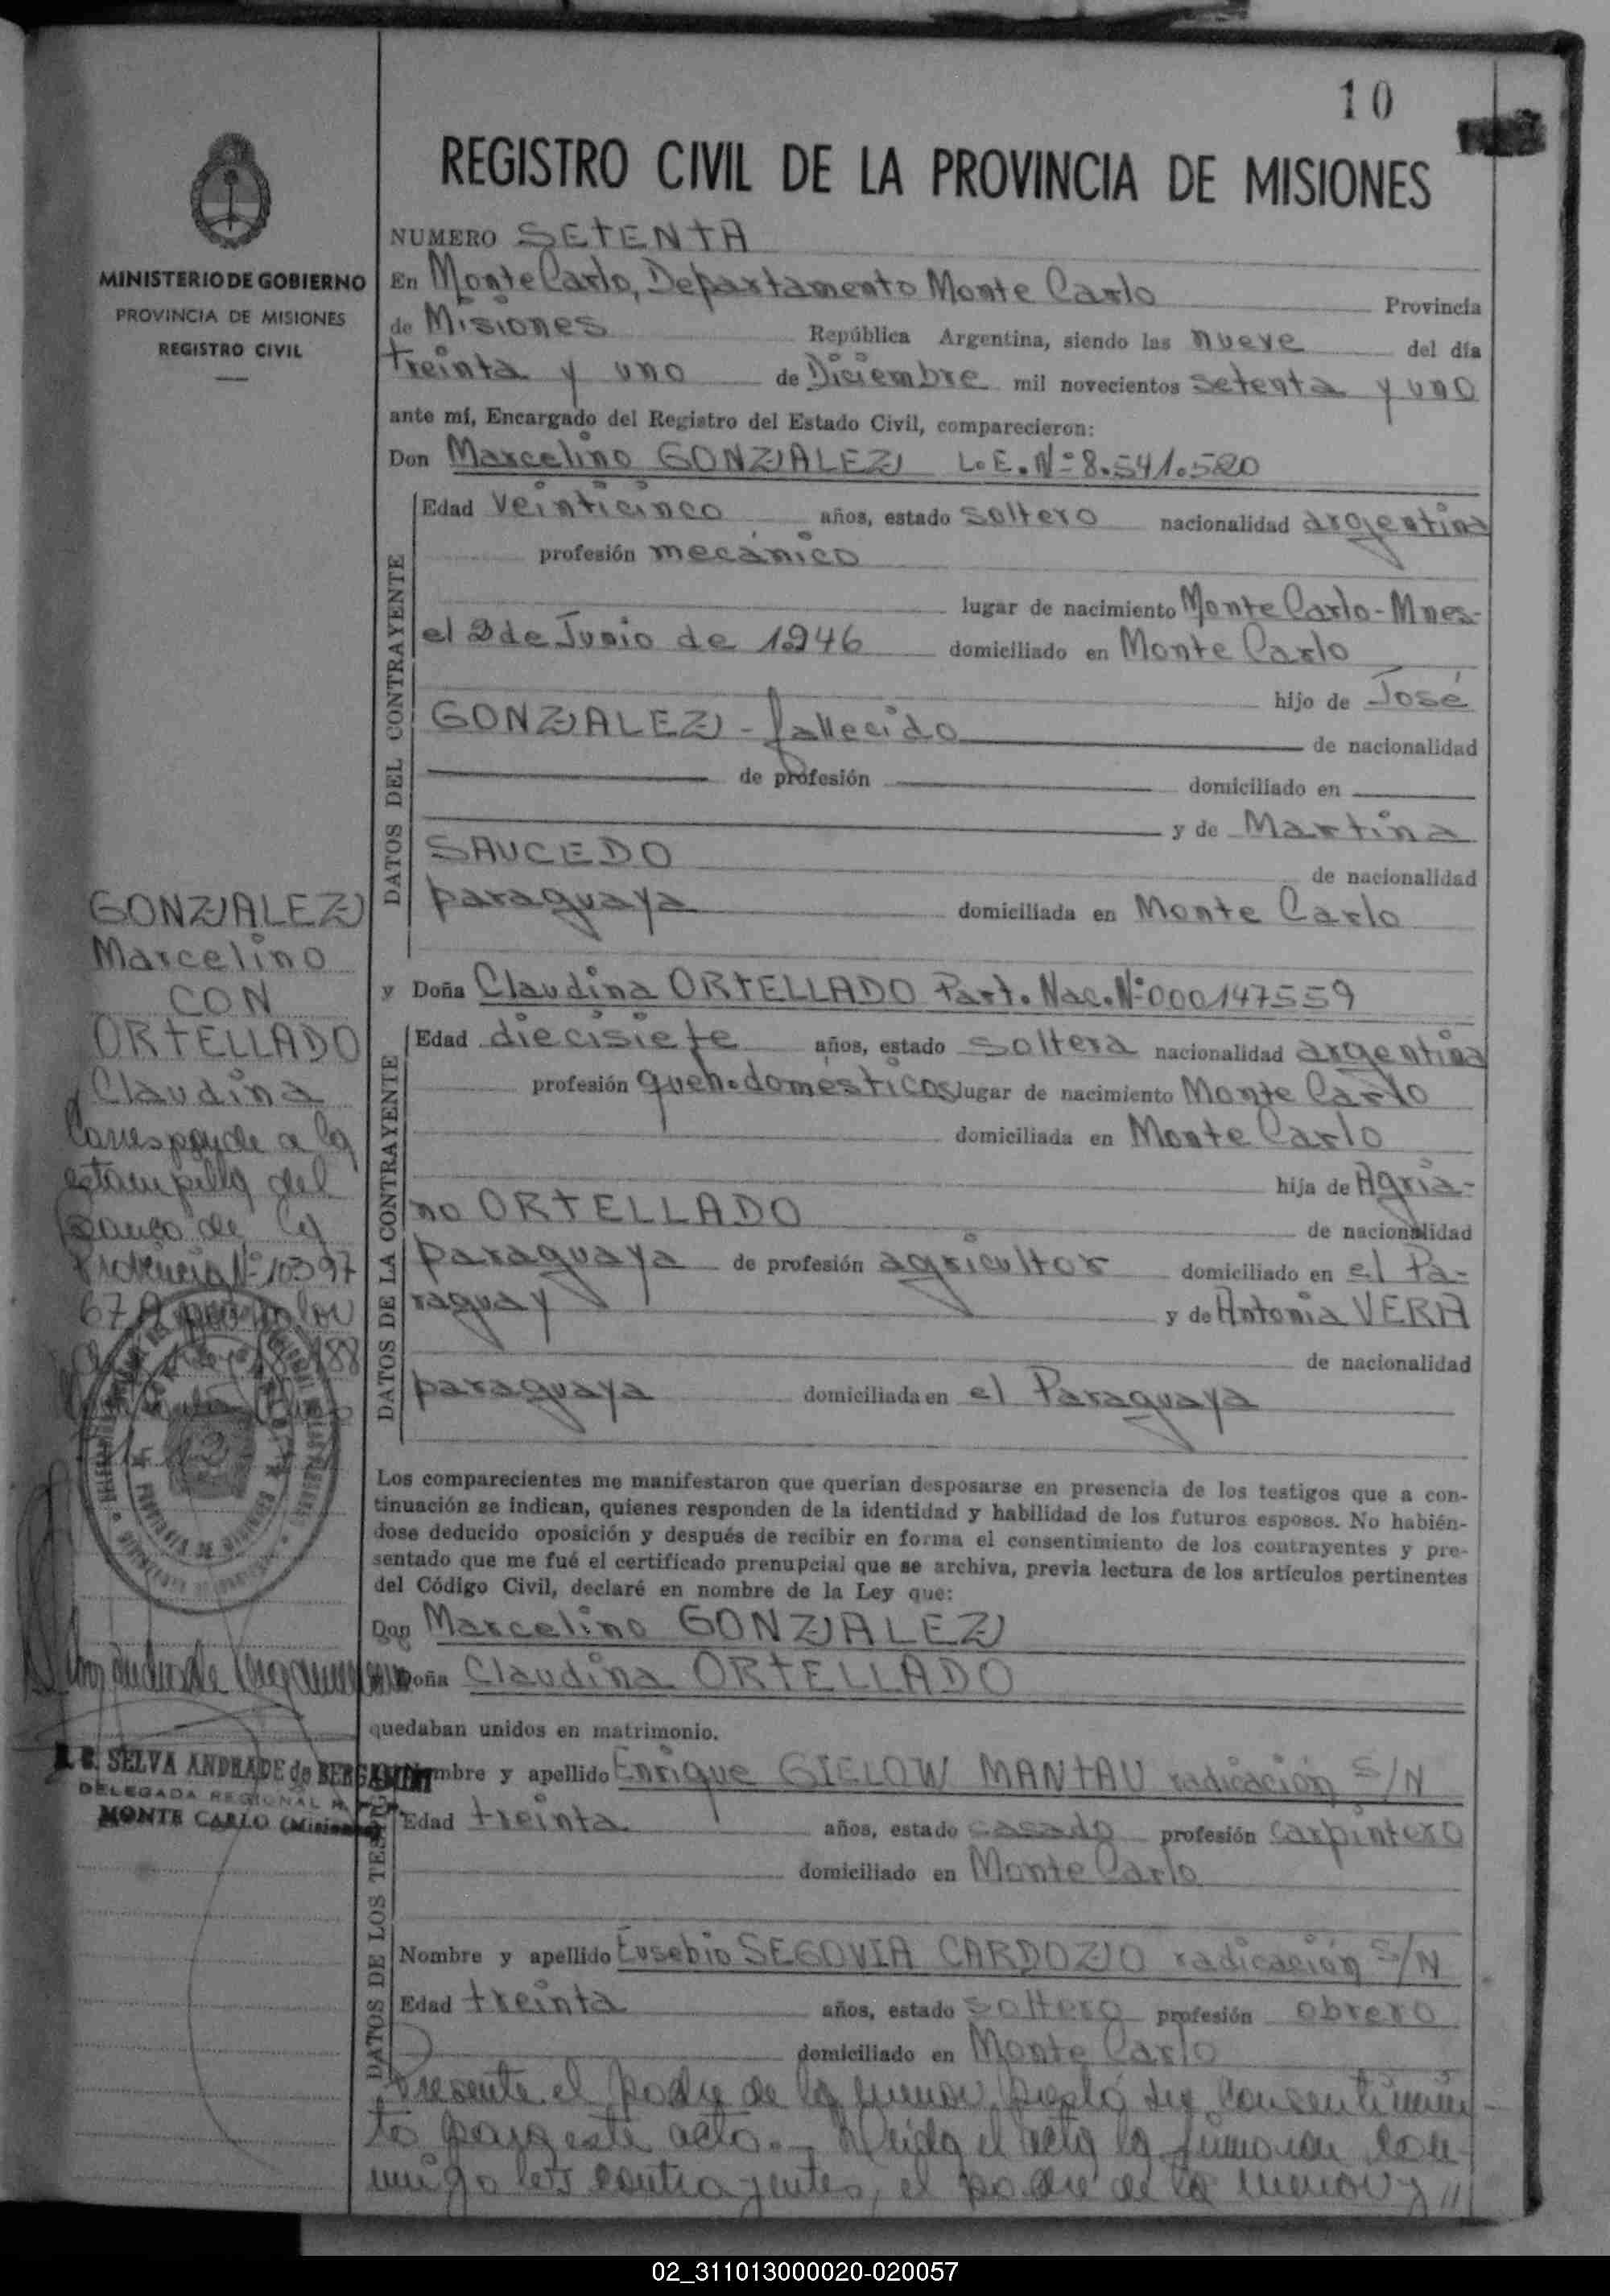 10
REGISTRO CIVIL DE LA PROVINCIA DE MISIONES
MINISTERIO DE GOBIERNO
PROVINCIA DE MISIONES
REGISTRO CIVIL
NUMERO SETENTA
En Monte Carlo, Departamento Monte Carlo Provincia
de Misiones República Argentina, siendo las nueve del día
treinta y uno de Diciembre mil novecientos setenta y uno
ante mí, Encargado del Registro del Estado Civil, comparecieron:
Don Marcelino GONZALEZ L.E.Nº 8.541.520
DATOS DEL CONTRAYENTE
Edad veinticinco años, estado soltero nacionalidad argentina
profesión mecánico
lugar de nacimiento Monte Carlo-Mnes-
el 2 de Junio de 1.946 domiciliado en Monte Carlo
hijo de José
GONZALEZ - fallecido de nacionalidad
de profesión domiciliado en
y de Martina
SAUCEDO de nacionalidad
paraguaya domiciliada en Monte Carlo
y Doña Claudina ORTELLADO Part. Nac. Nº 000147559
DATOS DE LA CONTRAYENTE
Edad diecisiete años, estado soltera nacionalidad argentina
profesión queh. domésticos lugar de nacimiento Monte Carlo
domiciliada en Monte Carlo
hija de Agria-
no ORTELLADO de nacionalidad
paraguaya de profesión agricultor domiciliado en el Pa-
raguay y de Antonia VERA
de nacionalidad
paraguaya domiciliada en el Paraguaya
GONZALEZ
Marcelino
CON
ORTELLADO
Claudina
Corresponde a la
estampilla del
Banco de la
Provincia Nº 10397
67 A por valor
Los comparecientes me manifestaron que querían desposarse en presencia de los testigos que a con-
tinuación se indican, quienes responden de la identidad y habilidad de los futuros esposos. No habién-
dose deducido oposición y después de recibir en forma el consentimiento de los contrayentes y pre-
sentado que me fué el certificado prenupcial que se archiva, previa lectura de los artículos pertinentes
del Código Civil, declaré en nombre de la Ley que:
Don Marcelino GONZALEZ
Doña Claudina ORTELLADO
quedaban unidos en matrimonio.
SELVA ANDRADE de BERGAMINI
DELEGADA REGIONAL R.
MONTE CARLO (Misiones)
DATOS DE LOS TESTIGOS
Nombre y apellido Enrique GIELOW MANTAU radicación S/N
Edad treinta años, estado casado profesión carpintero
domiciliado en Monte Carlo
Nombre y apellido Eusebio SEGOVIA CARDOZO radicación S/N
Edad treinta años, estado soltero profesión obrero
domiciliado en Monte Carlo
Presente el padre de la menor presta su consentimien-
to para este acto.- Leída el acta la firmaron con-
migo los contrayentes, el padre de la menor y //
02_311013000020-020057